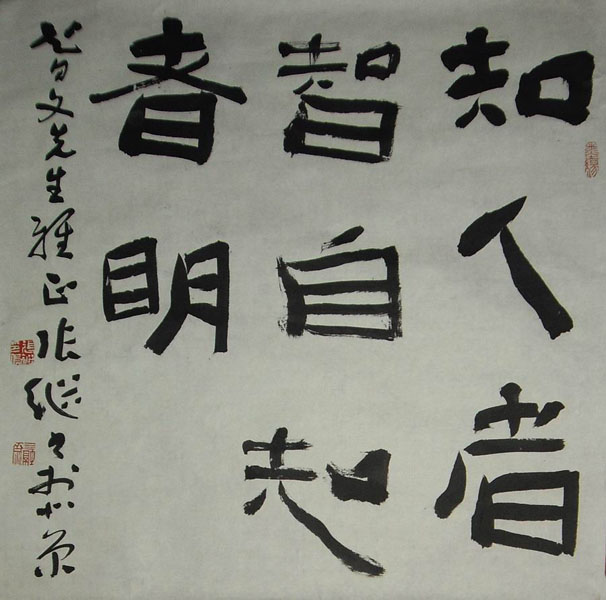 知人者
智自知
者明
文先生雅正张继